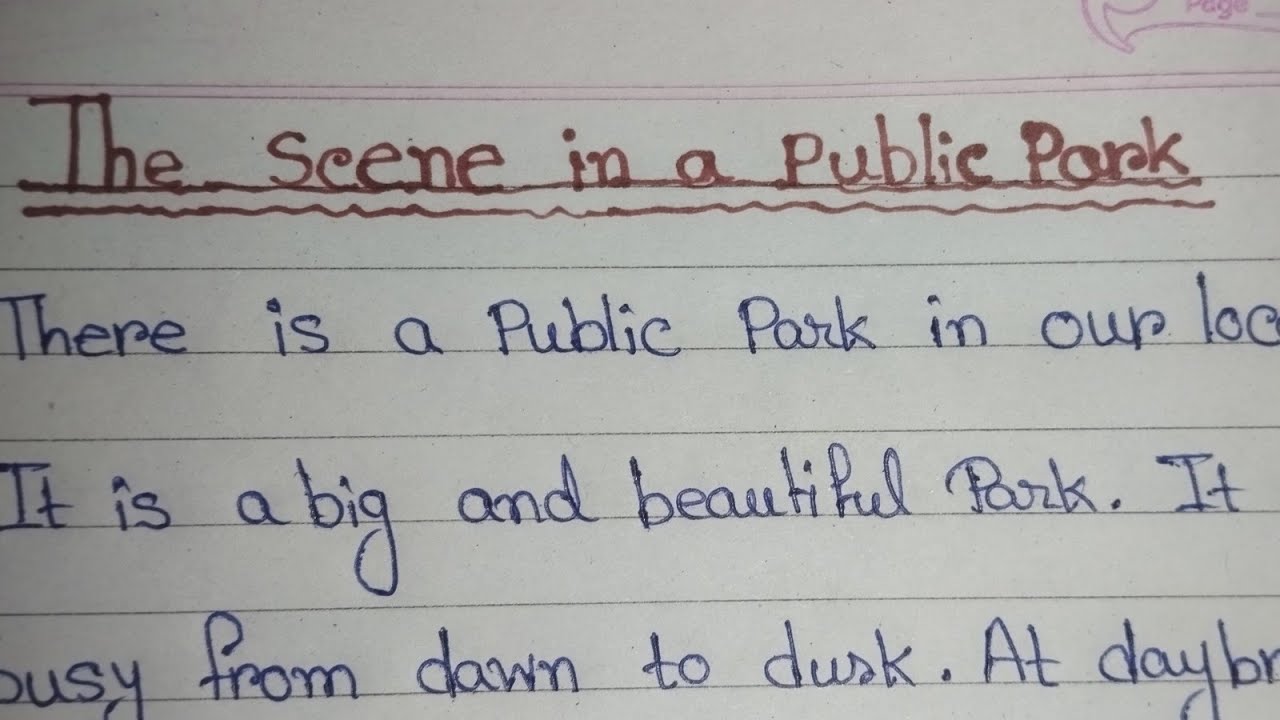 Page
The Scene in a Public Park
There is a Public Park in our loc
It is a big and beautiful Park. It
busy from dawn to dusk. At daybr